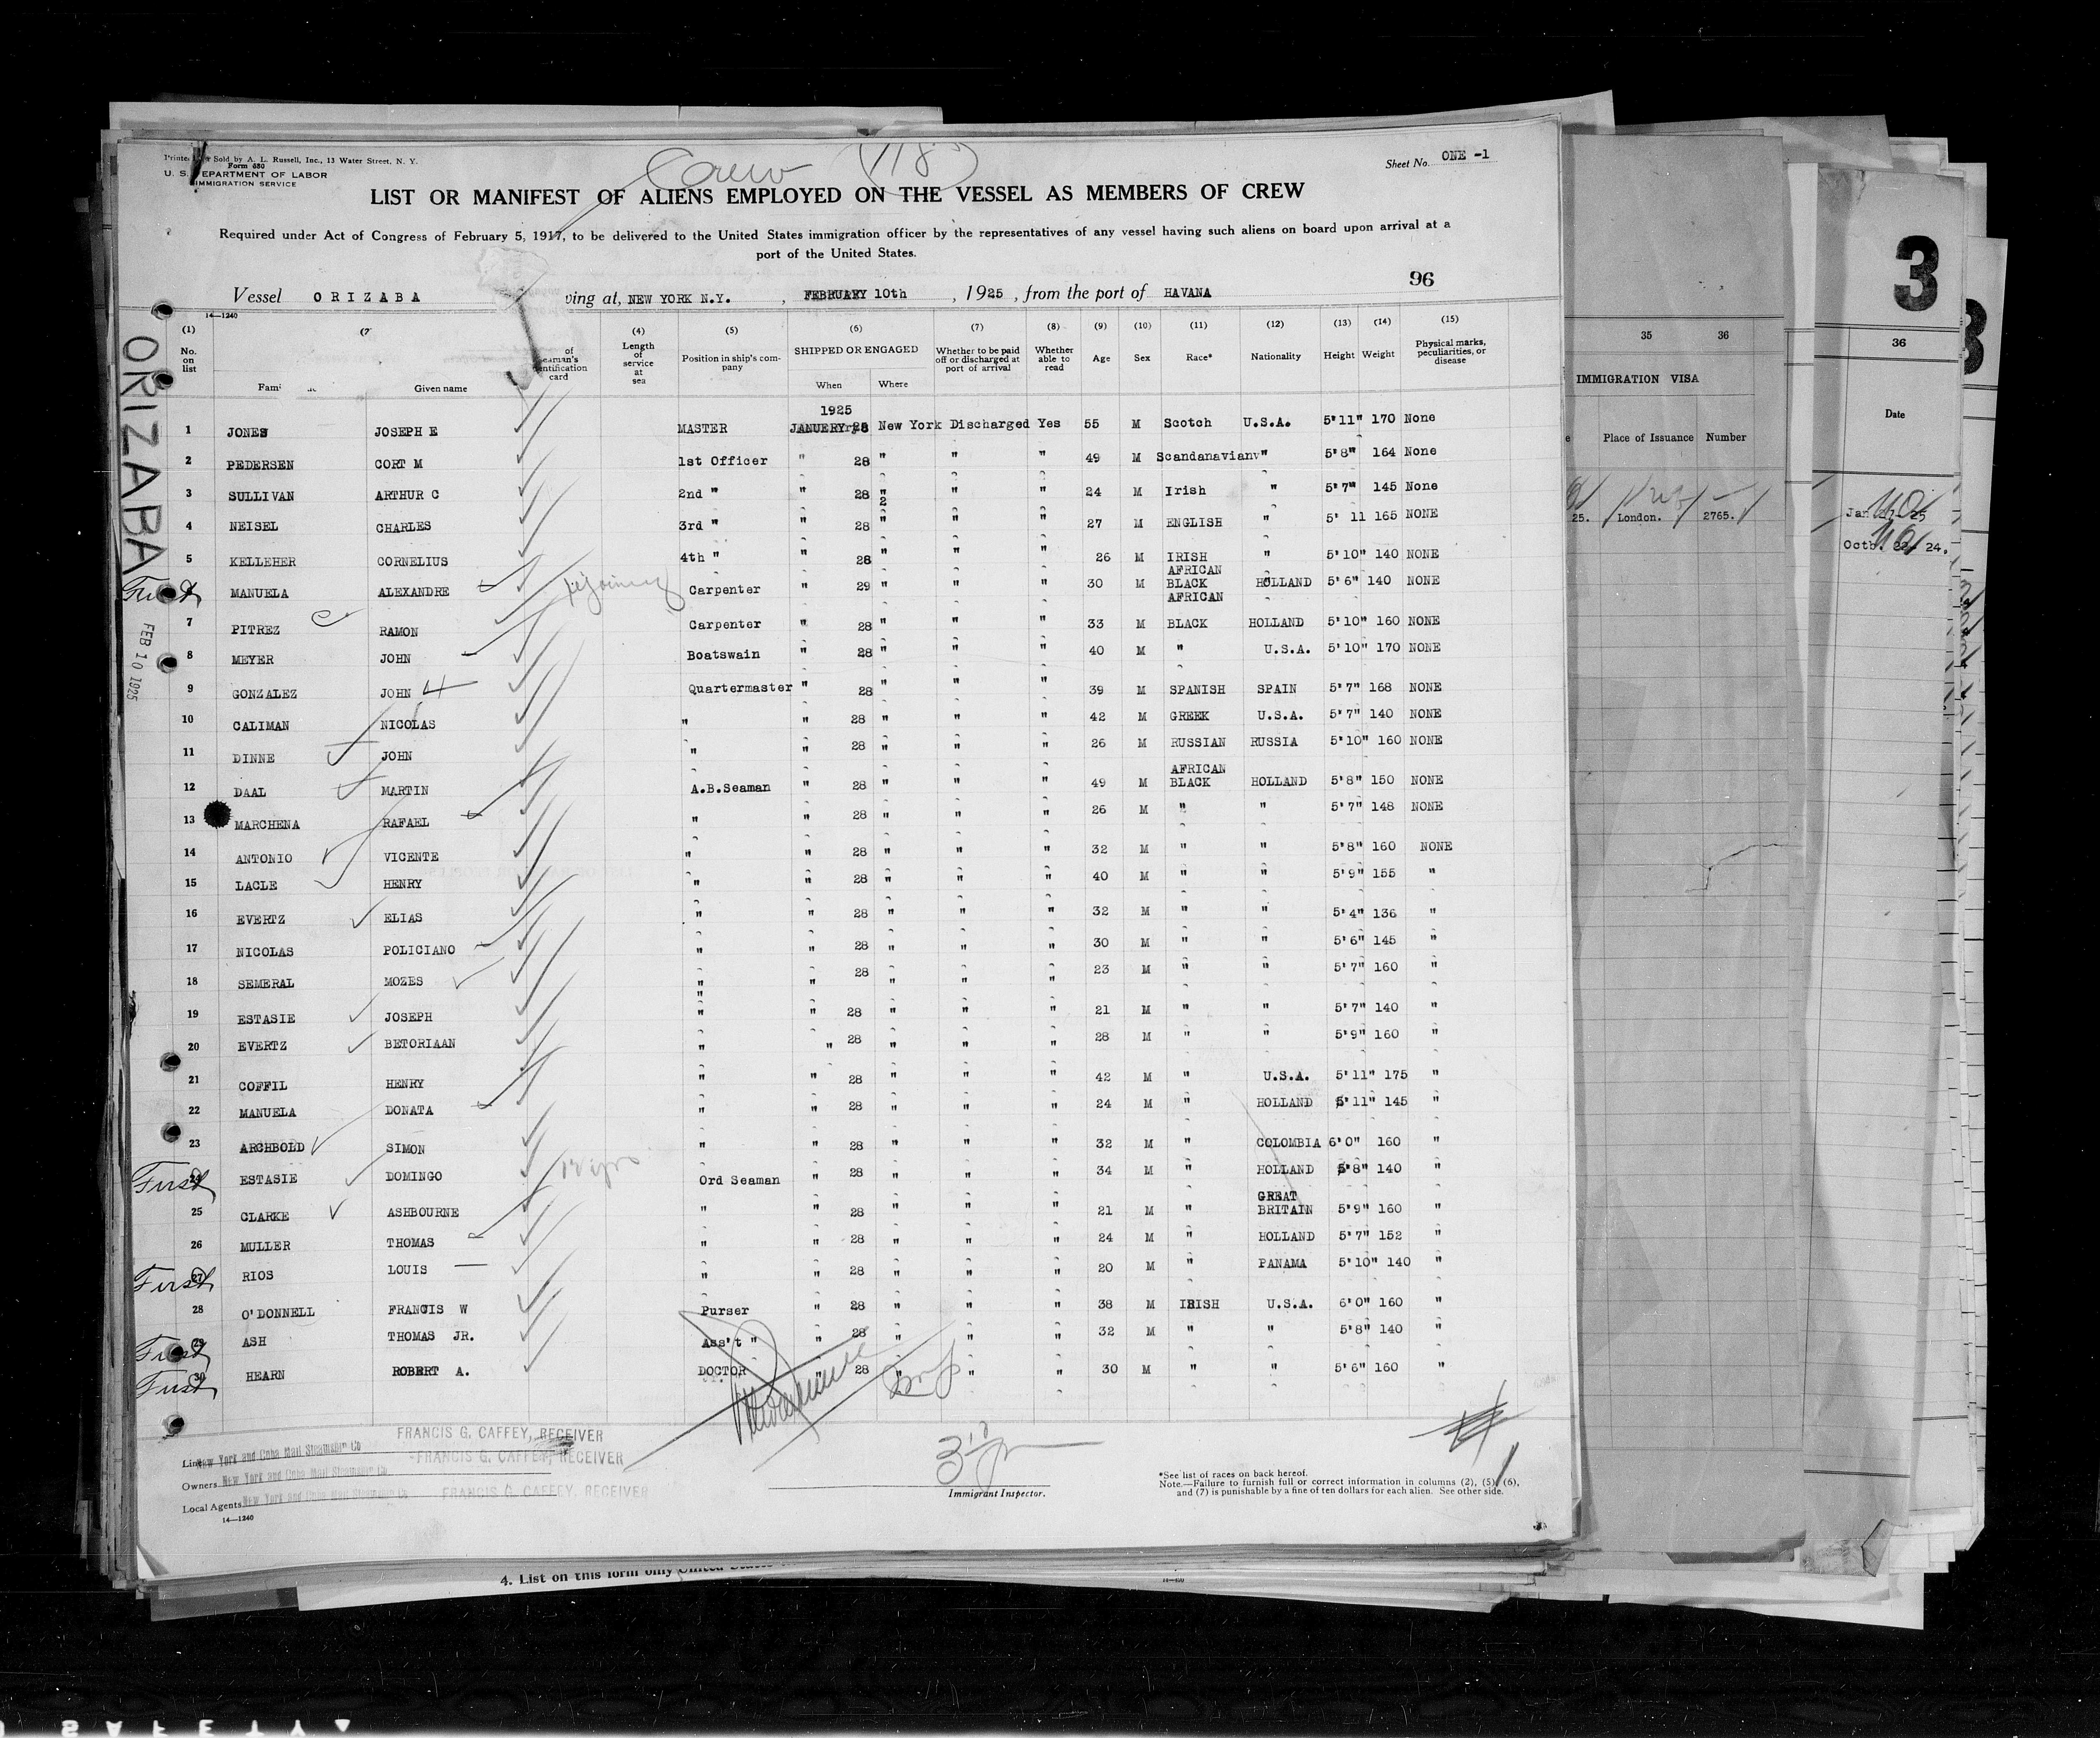 Sold by A. L. Russell, Inc., 13 Water Street, N. Y.
Form 680
U. S. DEPARTMENT OF LABOR
IMMIGRATION SERVICE
Crew (118)
Sheet No. ONE -1
LIST OR MANIFEST OF ALIENS EMPLOYED ON THE VESSEL AS MEMBERS OF CREW
Required under Act of Congress of February 5, 1917, to be delivered to the United States immigration officer by the representatives of any vessel having such aliens on board upon arrival at a
port of the United States.
96
Vessel ORIZABA ving at, NEW YORK N.Y. , FEBRUARY 10th , 1925 , from the port of HAVANA
14—1240
(1) (4) (5) (6) (7) (8) (9) (10) (11) (12) (13) (14) (15)
No. on list Given name of seaman's identification card Length of service at sea Position in ship's company SHIPPED OR ENGAGED When Where Whether to be paid off or discharged at port of arrival Whether able to read Age Sex Race* Nationality Height Weight Physical marks, peculiarities, or disease
1925
1 JONES JOSEPH E MASTER 28 New York Discharged Yes 55 M Scotch U.S.A. 5'11" 170 None
2 PEDERSEN CORT M 1st Officer " 28 " " " 49 M Scandanavian " 5'8" 164 None
3 SULLIVAN ARTHUR C 2nd " " 28 " " " 24 M Irish " 5'7" 145 None
2
4 NEISEL CHARLES 3rd " " 28 " " " 27 M ENGLISH " 5' 11 165 NONE
5 KELLEHER CORNELIUS 4th " " 28 " " " 26 M IRISH " 5'10" 140 NONE
First MANUELA ALEXANDRE rejoining Carpenter " 29 " " " 30 M AFRICAN BLACK HOLLAND 5'6" 140 NONE
7 PITREZ RAMON Carpenter " 28 " " " 33 M AFRICAN BLACK HOLLAND 5'10" 160 NONE
8 MEYER JOHN Boatswain " 28 " " " 40 M " U.S.A. 5'10" 170 NONE
9 GONZALEZ JOHN Quartermaster " 28 " " " 39 M SPANISH SPAIN 5'7" 168 NONE
10 CALIMAN NICOLAS " " 28 " " " 42 M GREEK U.S.A. 5'7" 140 NONE
11 DINNE JOHN " " 28 " " " 26 M RUSSIAN RUSSIA 5'10" 160 NONE
12 DAAL MARTIN A.B.Seaman " 28 " " " 49 M AFRICAN BLACK HOLLAND 5'8" 150 NONE
13 MARCHENA RAFAEL " " 28 " " " 26 M " " 5'7" 148 NONE
14 ANTONIO VICENTE " " 28 " " " 32 M " " 5'8" 160 NONE
15 LACLE HENRY " " 28 " " " 40 M " " 5'9" 155 "
16 EVERTZ ELIAS " " 28 " " " 32 M " " 5'4" 136 "
17 NICOLAS POLICIANO " " 28 " " " 30 M " " 5'6" 145 "
18 SEMERAL MOZES " " 28 " " " 23 M " " 5'7" 160 "
19 ESTASIE JOSEPH " " 28 " " " 21 M " " 5'7" 140 "
20 EVERTZ BETORIAAN " " 28 " " " 28 M " " 5'9" 160 "
21 COFFIL HENRY " " 28 " " " 42 M " U.S.A. 5'11" 175 "
22 MANUELA DONATA " " 28 " " " 24 M " HOLLAND 5'11" 145 "
23 ARCHBOLD SIMON " " 28 " " " 32 M " COLOMBIA 6'0" 160 "
First 24 ESTASIE DOMINGO Ord Seaman " 28 " " " 34 M " HOLLAND 5'8" 140 "
25 CLARKE ASHBOURNE " " 28 " " " 21 M " GREAT BRITAIN 5'9" 160 "
26 MULLER THOMAS " " 28 " " " 24 M " HOLLAND 5'7" 152 "
First 27 RIOS LOUIS " " 28 " " " 20 M " PANAMA 5'10" 140 "
28 O'DONNELL FRANCIS W Purser " 28 " " " 38 M IRISH U.S.A. 6'0" 160 "
First 29 ASH THOMAS JR. Ass't " " 28 " " " 32 M " " 5'8" 140 "
First 30 HEARN ROBERT A. DOCTOR " 28 " " " 30 M " " 5'6" 160 "
ORIZABA
FEB 10 1925
FRANCIS G. CAFFEY, RECEIVER
Line New York and Cuba Mail Steamship Co
FRANCIS G. CAFFEY, RECEIVER
Owners New York and Cuba Mail Steamship Co
Local Agents New York and Cuba Mail Steamship Co FRANCIS G. CAFFEY, RECEIVER
14—1240
Immigrant Inspector.
*See list of races on back hereof.
Note.—Failure to furnish full or correct information in columns (2), (5), (6),
and (7) is punishable by a fine of ten dollars for each alien. See other side.
4. List on this form only United
35 36
IMMIGRATION VISA
Place of Issuance Number
25. London. 2765.
3
36
Date
Octb. 22 24.